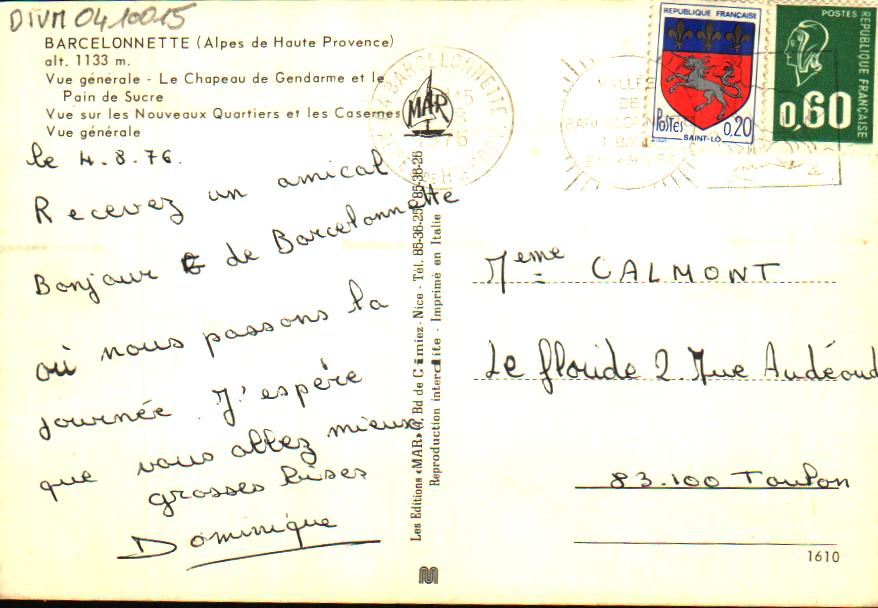 DIVM 0410015
BARCELONNETTE (Alpes de Haute Provence)
alt. 1133 m.
Vue générale - Le Chapeau de Gendarme et le
Pain de Sucre
Vue sur les Nouveaux Quartiers et les Casernes
Vue générale
le 4.8.76.
Recevez un amical
Bonjour de Barcelonnette
où nous passons la
journée. J'espère
que vous allez mieux
grosses bises
Dominique
MAR
Les Editions «MAR» Bd de Cimiez - Nice - Tél. 85-36-25 85-38-26
Reproduction interdite - Imprimé en Italie
BARCELONNETTE
VALLÉE
DE
REPUBLIQUE FRANÇAISE
Postes 0,20
SAINT-LO
POSTES
REPUBLIQUE FRANÇAISE
0,60
Meme CALMONT
Le floride 2 Rue Audéoud
83.100 Toulon
1610